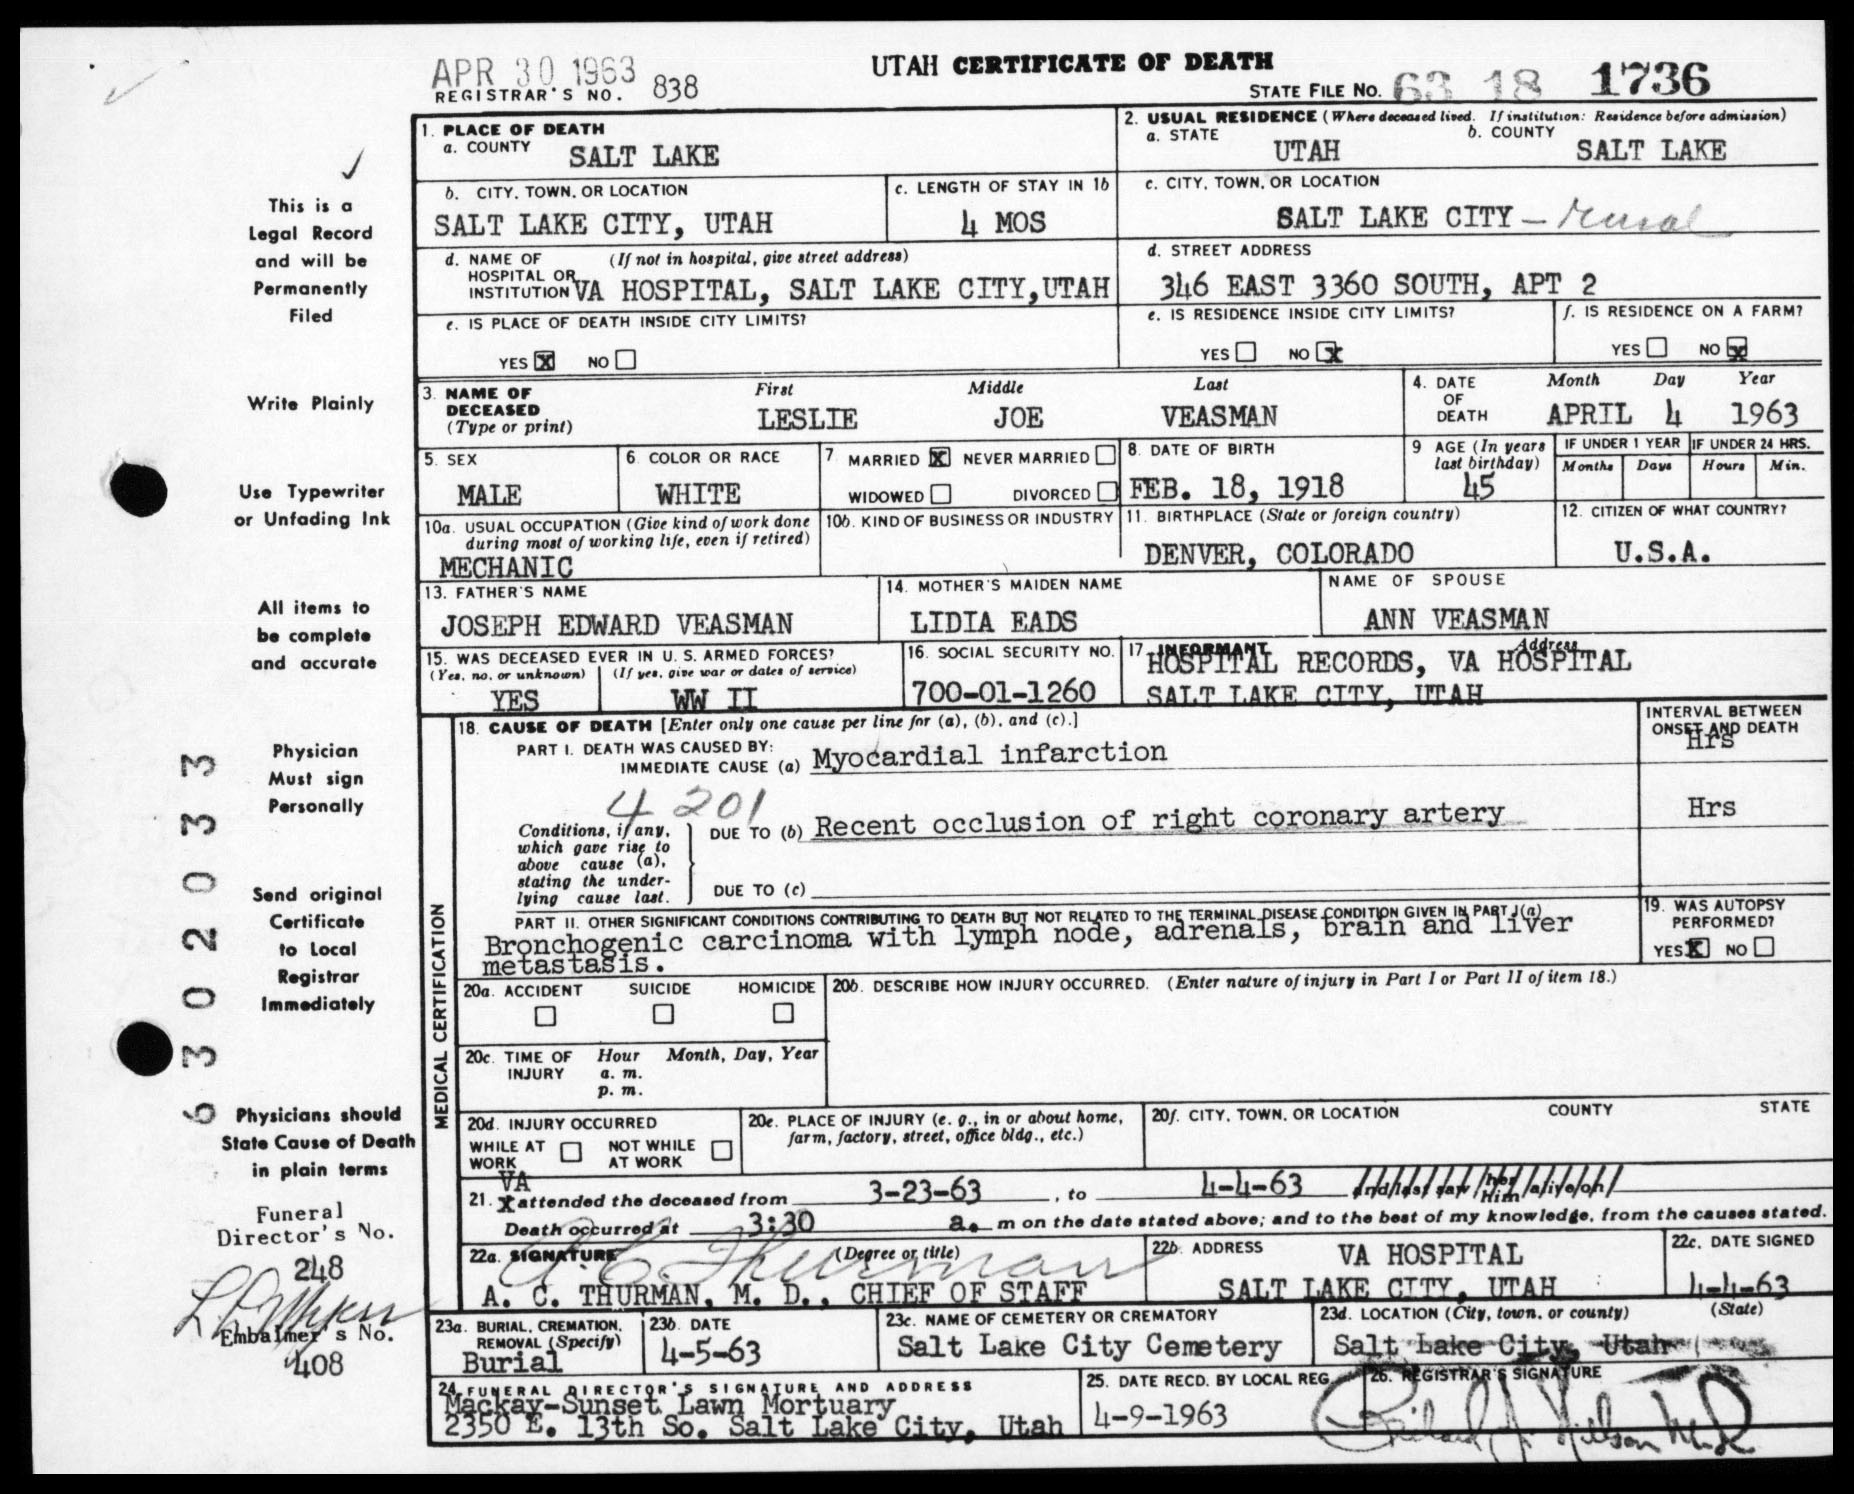 APR 30 1963
REGISTRAR'S NO. 838
UTAH CERTIFICATE OF DEATH
STATE FILE NO. 63 18 1736
This is a
Legal Record
and will be
Permanently
Filed
Write Plainly
Use Typewriter
or Unfading Ink
All items to
be complete
and accurate
Physician
Must sign
Personally
Send original
Certificate
to Local
Registrar
Immediately
Physicians should
State Cause of Death
in plain terms
Funeral
Director's No.
248
Embalmer's No.
408
6302033
1. PLACE OF DEATH
a. COUNTY SALT LAKE
2. USUAL RESIDENCE (Where deceased lived. If institution: Residence before admission)
a. STATE UTAH b. COUNTY SALT LAKE
b. CITY, TOWN, OR LOCATION
SALT LAKE CITY, UTAH
c. LENGTH OF STAY IN 1b
4 MOS
c. CITY, TOWN, OR LOCATION
SALT LAKE CITY - rural
d. NAME OF (If not in hospital, give street address)
HOSPITAL OR
INSTITUTION VA HOSPITAL, SALT LAKE CITY, UTAH
d. STREET ADDRESS
346 EAST 3360 SOUTH, APT 2
e. IS PLACE OF DEATH INSIDE CITY LIMITS?
YES X NO
e. IS RESIDENCE INSIDE CITY LIMITS?
YES NO X
f. IS RESIDENCE ON A FARM?
YES NO X
3. NAME OF
DECEASED
(Type or print)
First Middle Last
LESLIE JOE VEASMAN
4. DATE
OF
DEATH
Month Day Year
APRIL 4 1963
5. SEX
MALE
6. COLOR OR RACE
WHITE
7. MARRIED X NEVER MARRIED
WIDOWED DIVORCED
8. DATE OF BIRTH
FEB. 18, 1918
9 AGE (In years
last birthday)
45
IF UNDER 1 YEAR
Months Days
IF UNDER 24 HRS.
Hours Min.
10a. USUAL OCCUPATION (Give kind of work done
during most of working life, even if retired)
MECHANIC
10b. KIND OF BUSINESS OR INDUSTRY
11. BIRTHPLACE (State or foreign country)
DENVER, COLORADO
12. CITIZEN OF WHAT COUNTRY?
U.S.A.
13. FATHER'S NAME
JOSEPH EDWARD VEASMAN
14. MOTHER'S MAIDEN NAME
LIDIA EADS
NAME OF SPOUSE
ANN VEASMAN
15. WAS DECEASED EVER IN U. S. ARMED FORCES?
(Yes, no, or unknown) (If yes, give war or dates of service)
YES WW II
16. SOCIAL SECURITY NO.
700-01-1260
17. INFORMANT Address
HOSPITAL RECORDS, VA HOSPITAL
SALT LAKE CITY, UTAH
MEDICAL CERTIFICATION
18. CAUSE OF DEATH [Enter only one cause per line for (a), (b), and (c).]
PART I. DEATH WAS CAUSED BY:
IMMEDIATE CAUSE (a) Myocardial infarction
INTERVAL BETWEEN
ONSET AND DEATH
Hrs
4201
Conditions, if any,
which gave rise to
above cause (a),
stating the under-
lying cause last.
DUE TO (b) Recent occlusion of right coronary artery
Hrs
DUE TO (c)
PART II. OTHER SIGNIFICANT CONDITIONS CONTRIBUTING TO DEATH BUT NOT RELATED TO THE TERMINAL DISEASE CONDITION GIVEN IN PART I(a)
Bronchogenic carcinoma with lymph node, adrenals, brain and liver
metastasis.
19. WAS AUTOPSY
PERFORMED?
YES X NO
20a. ACCIDENT SUICIDE HOMICIDE
20b. DESCRIBE HOW INJURY OCCURRED. (Enter nature of injury in Part I or Part II of item 18.)
20c. TIME OF Hour Month, Day, Year
INJURY a. m.
p. m.
20d. INJURY OCCURRED
WHILE AT NOT WHILE
WORK AT WORK
20e. PLACE OF INJURY (e. g., in or about home,
farm, factory, street, office bldg., etc.)
20f. CITY, TOWN, OR LOCATION COUNTY STATE
VA
21. X attended the deceased from 3-23-63, to 4-4-63 and last saw her him alive on
Death occurred at 3:30 a. m on the date stated above; and to the best of my knowledge, from the causes stated.
22a. SIGNATURE (Degree or title)
A C Thurman
A. C. THURMAN, M. D., CHIEF OF STAFF
22b. ADDRESS VA HOSPITAL
SALT LAKE CITY, UTAH
22c. DATE SIGNED
4-4-63
23a. BURIAL, CREMATION,
REMOVAL (Specify)
Burial
23b. DATE
4-5-63
23c. NAME OF CEMETERY OR CREMATORY
Salt Lake City Cemetery
23d. LOCATION (City, town, or county) (State)
Salt Lake City, Utah
24. FUNERAL DIRECTOR'S SIGNATURE AND ADDRESS
Mackay-Sunset Lawn Mortuary
2350 E. 13th So. Salt Lake City, Utah
25. DATE RECD. BY LOCAL REG.
4-9-1963
26. REGISTRAR'S SIGNATURE